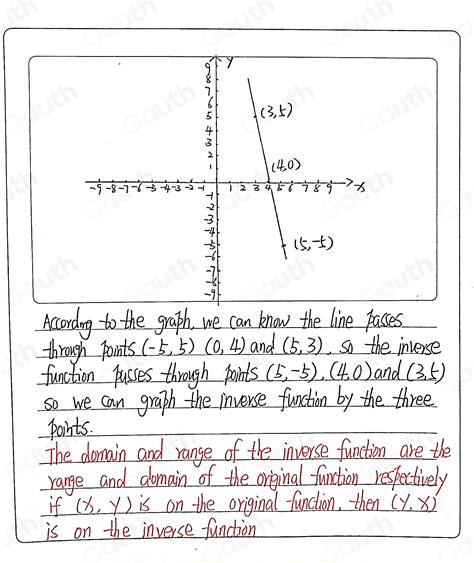 y
9
8
7
6
5
4
3
2
1
(3,5)
(4,0)
-9 -8 -7 -6 -5 -4 -3 -2 -1 1 2 3 4 5 6 7 8 9 x
-1
-2
-3
-4
-5
-6
-7
-8
-9
(5,-5)
According to the graph, we can know the line passes
through points (-5, 5) (0, 4) and (5, 3), so the inverse
function passes through points (5, -5), (4, 0) and (3, 5)
so we can graph the inverse function by the three
points.
The domain and range of the inverse function are the
range and domain of the original function respectively
if (x, y) is on the original function, then (y, x)
is on the inverse function
Gauth